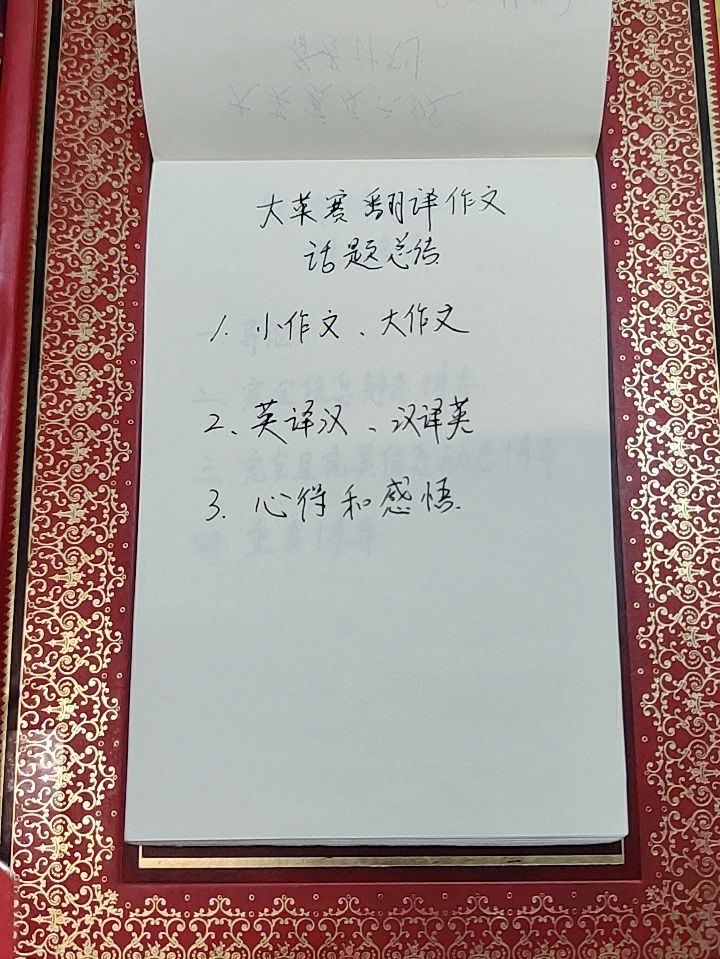 大英赛翻译作文
话题总结
1. 小作文、大作文
2、英译汉、汉译英
3. 心得和感悟.